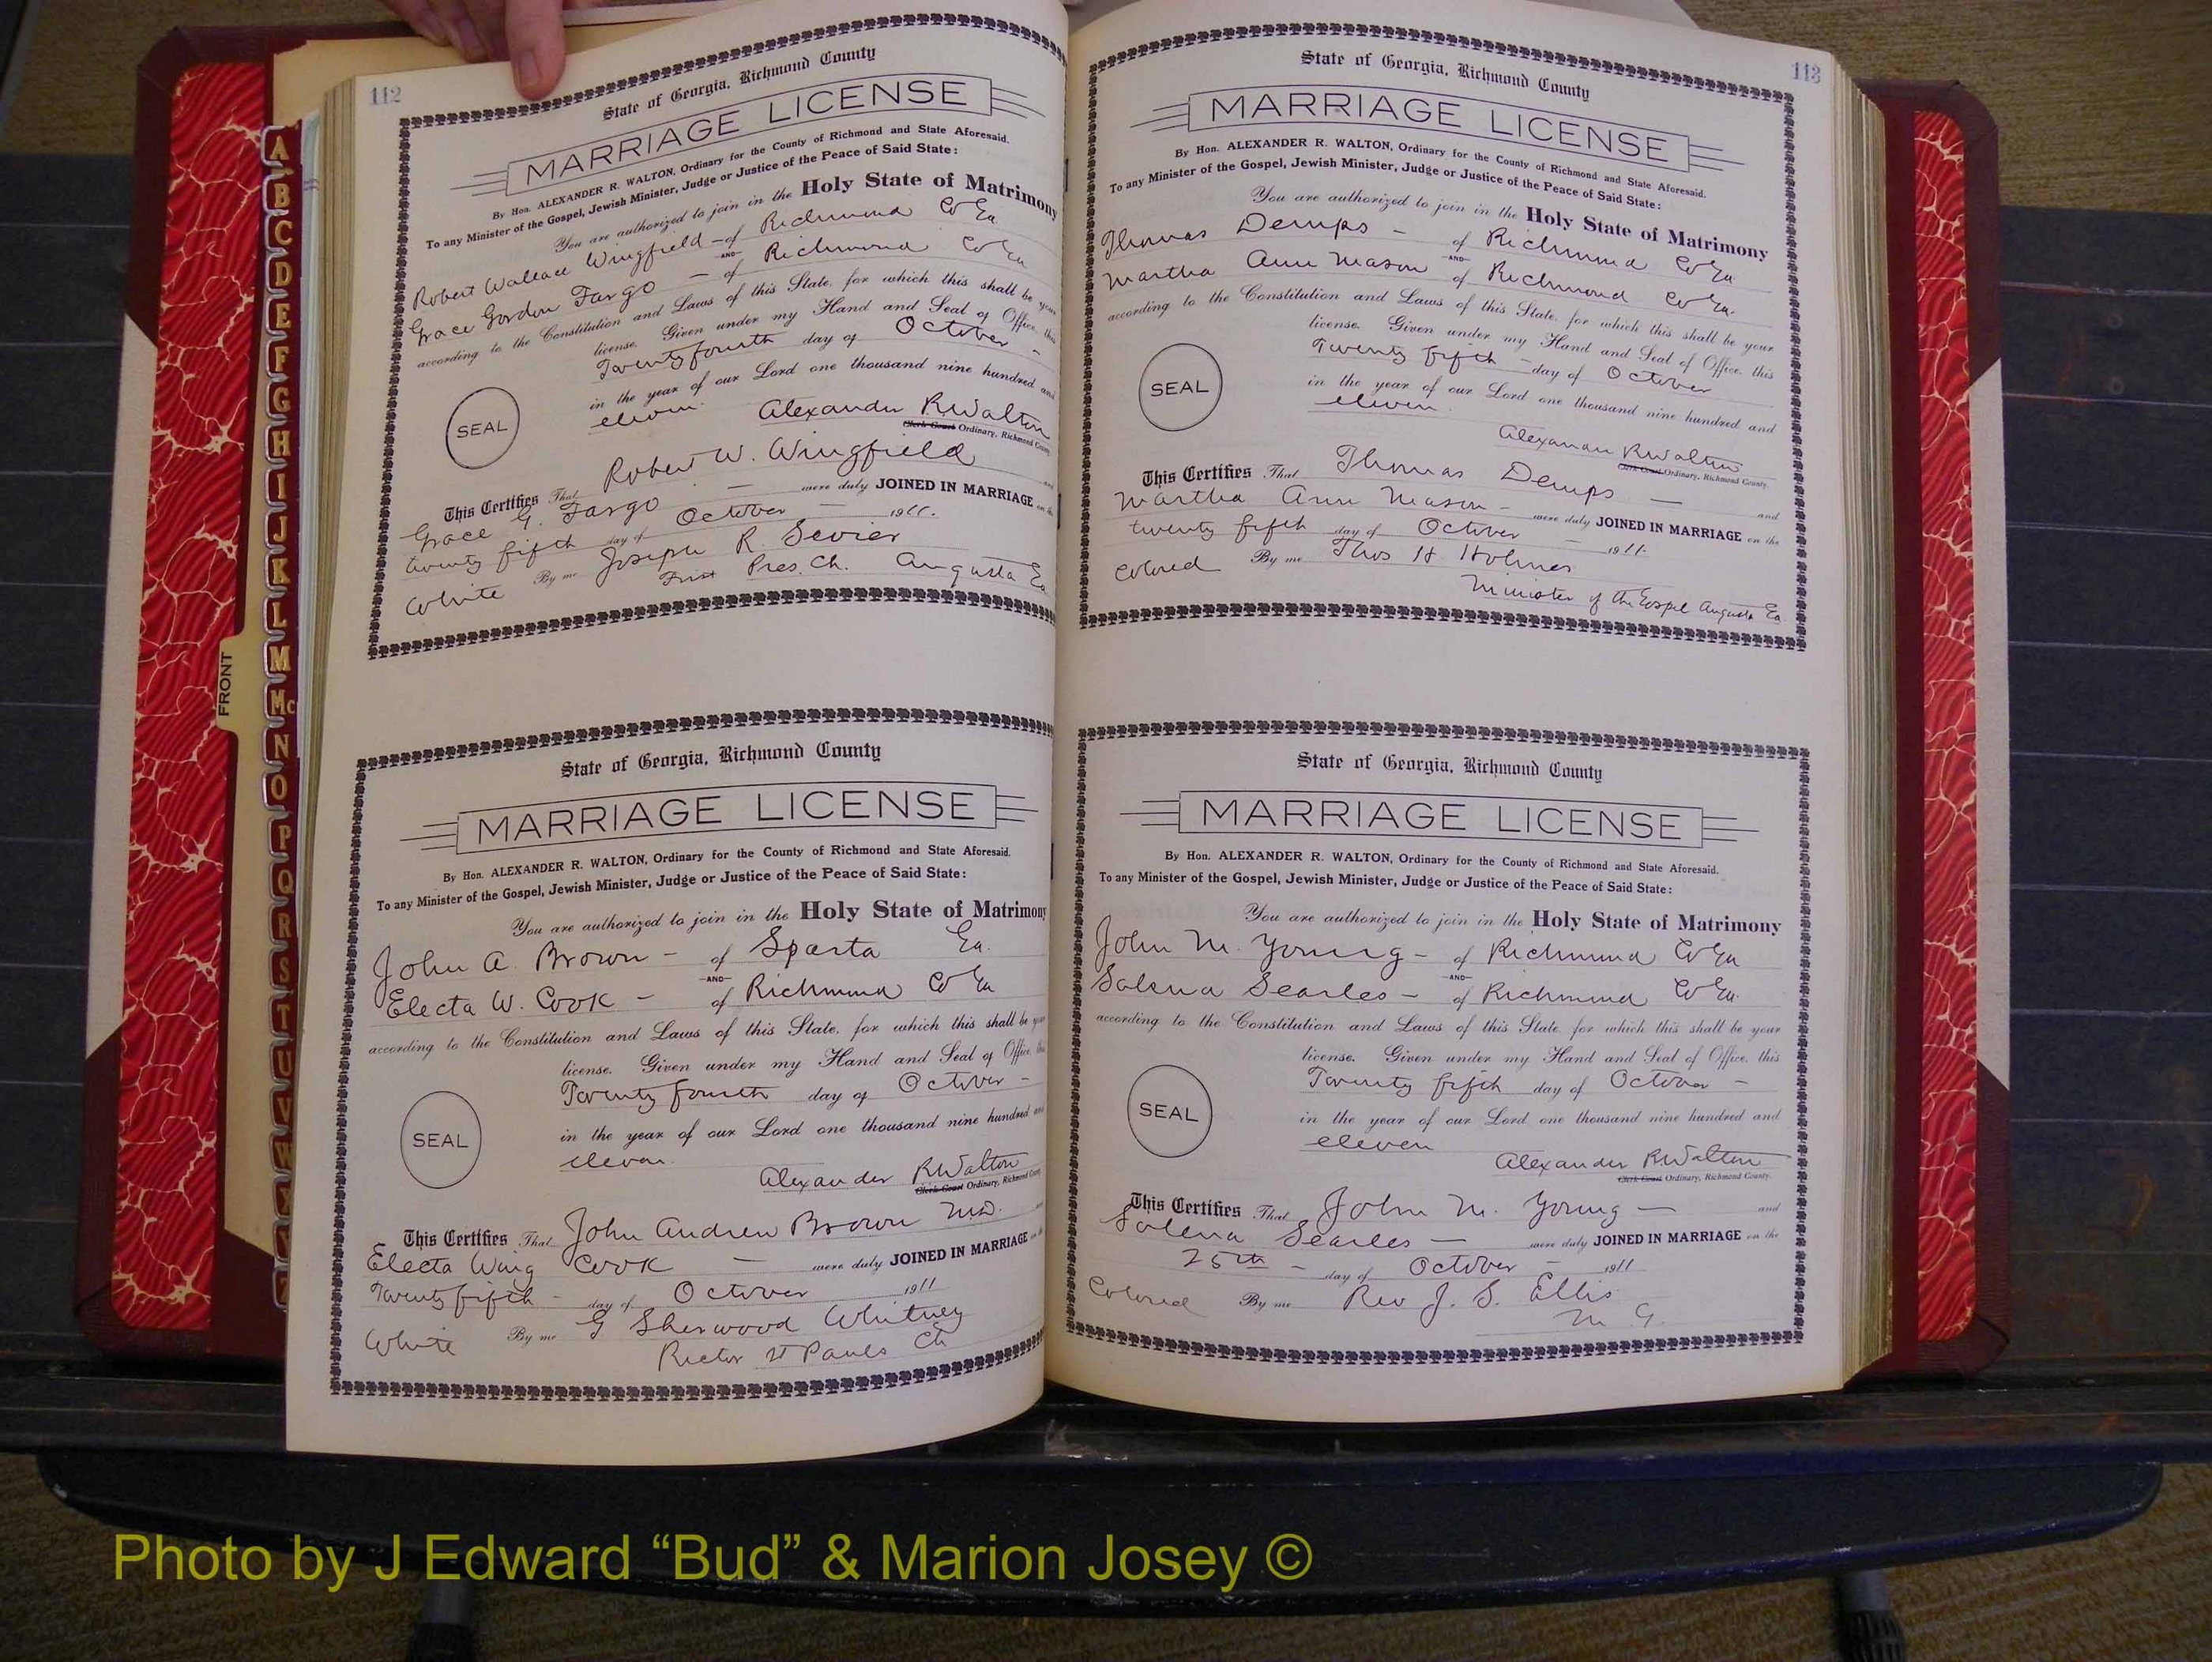 112
State of Georgia, Richmond County
MARRIAGE LICENSE
By Hon. ALEXANDER R. WALTON, Ordinary for the County of Richmond and State Aforesaid.
To any Minister of the Gospel, Jewish Minister, Judge or Justice of the Peace of Said State:
You are authorized to join in the Holy State of Matrimony
Robert Wallace Wingfield - of Richmond Co Ga
AND
Grace Gordon Fargo - of Richmond Co Ga
according to the Constitution and Laws of this State, for which this shall be your
license. Given under my Hand and Seal of Office, this
Twenty fourth day of October -
in the year of our Lord one thousand nine hundred and
eleven.
SEAL
Alexander R Walton
Clerk Court Ordinary, Richmond County
This Certifies That Robert W. Wingfield
Grace G. Fargo - were duly JOINED IN MARRIAGE on the
twenty fifth day of October - 1911.
White By me Joseph R. Sevier
First Pres. Ch. Augusta Ga
State of Georgia, Richmond County
MARRIAGE LICENSE
By Hon. ALEXANDER R. WALTON, Ordinary for the County of Richmond and State Aforesaid.
To any Minister of the Gospel, Jewish Minister, Judge or Justice of the Peace of Said State:
You are authorized to join in the Holy State of Matrimony
John A. Brown - of Sparta Ga.
AND
Electa W. Cook - of Richmond Co Ga
according to the Constitution and Laws of this State, for which this shall be your
license. Given under my Hand and Seal of Office, this
Twenty fourth day of October -
in the year of our Lord one thousand nine hundred and
eleven.
SEAL
Alexander R Walton
Clerk Court Ordinary, Richmond County
This Certifies That John Andrew Brown M.D.
Electa Wing Cook - were duly JOINED IN MARRIAGE on the
Twenty fifth - day of October 1911
White By me G Sherwood Whitney
Rector St Pauls Ch
113
State of Georgia, Richmond County
MARRIAGE LICENSE
By Hon. ALEXANDER R. WALTON, Ordinary for the County of Richmond and State Aforesaid.
To any Minister of the Gospel, Jewish Minister, Judge or Justice of the Peace of Said State:
You are authorized to join in the Holy State of Matrimony
Thomas Demps - of Richmond Co Ga
AND
Martha Ann Mason of Richmond Co Ga.
according to the Constitution and Laws of this State, for which this shall be your
license. Given under my Hand and Seal of Office, this
Twenty fifth - day of October
in the year of our Lord one thousand nine hundred and
eleven.
SEAL
Alexander R Walton
Clerk Court Ordinary, Richmond County.
This Certifies That Thomas Demps - and
Martha Ann Mason - were duly JOINED IN MARRIAGE on the
twenty fifth day of October - 1911.
Colored By me Thos H. Holmes
Minister of the Gospel Augusta Ga
State of Georgia, Richmond County
MARRIAGE LICENSE
By Hon. ALEXANDER R. WALTON, Ordinary for the County of Richmond and State Aforesaid.
To any Minister of the Gospel, Jewish Minister, Judge or Justice of the Peace of Said State:
You are authorized to join in the Holy State of Matrimony
John M. Young - of Richmond Co Ga
AND
Salena Searles - of Richmond Co Ga.
according to the Constitution and Laws of this State, for which this shall be your
license. Given under my Hand and Seal of Office, this
Twenty fifth day of October -
in the year of our Lord one thousand nine hundred and
eleven
SEAL
Alexander R Walton
Clerk Court Ordinary, Richmond County.
This Certifies That John M. Young - and
Salena Searles - were duly JOINED IN MARRIAGE on the
25th - day of October - 1911
Colored By me Rev J. S. Ellis
M G.
FRONT
A
B
C
D
E
F
G
H
I
J
K
L
M
Mc
N
O
P
Q
R
S
T
U
V
W
X
Y
Z
Photo by J Edward “Bud” & Marion Josey ©